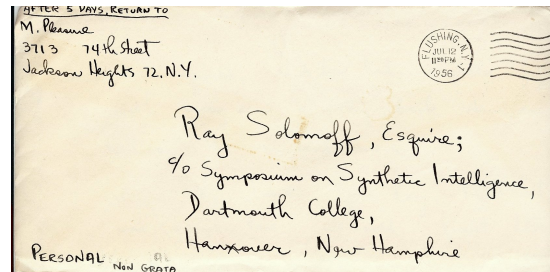 AFTER 5 DAYS, RETURN TO
M. Pleasure
3713 74th Street
Jackson Heights 72, N.Y.
FLUSHING, N.Y.
JUL 12
1956
Ray Solomoff, Esquire;
c/o Symposium on Synthetic Intelligence,
Dartmouth College,
Hanxover, New Hamphire
PERSONAL
NON GRATA